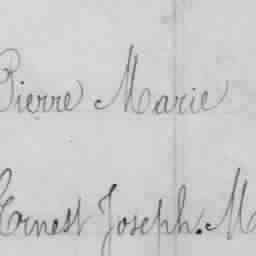 Pierre Marie
Ernest Joseph. M